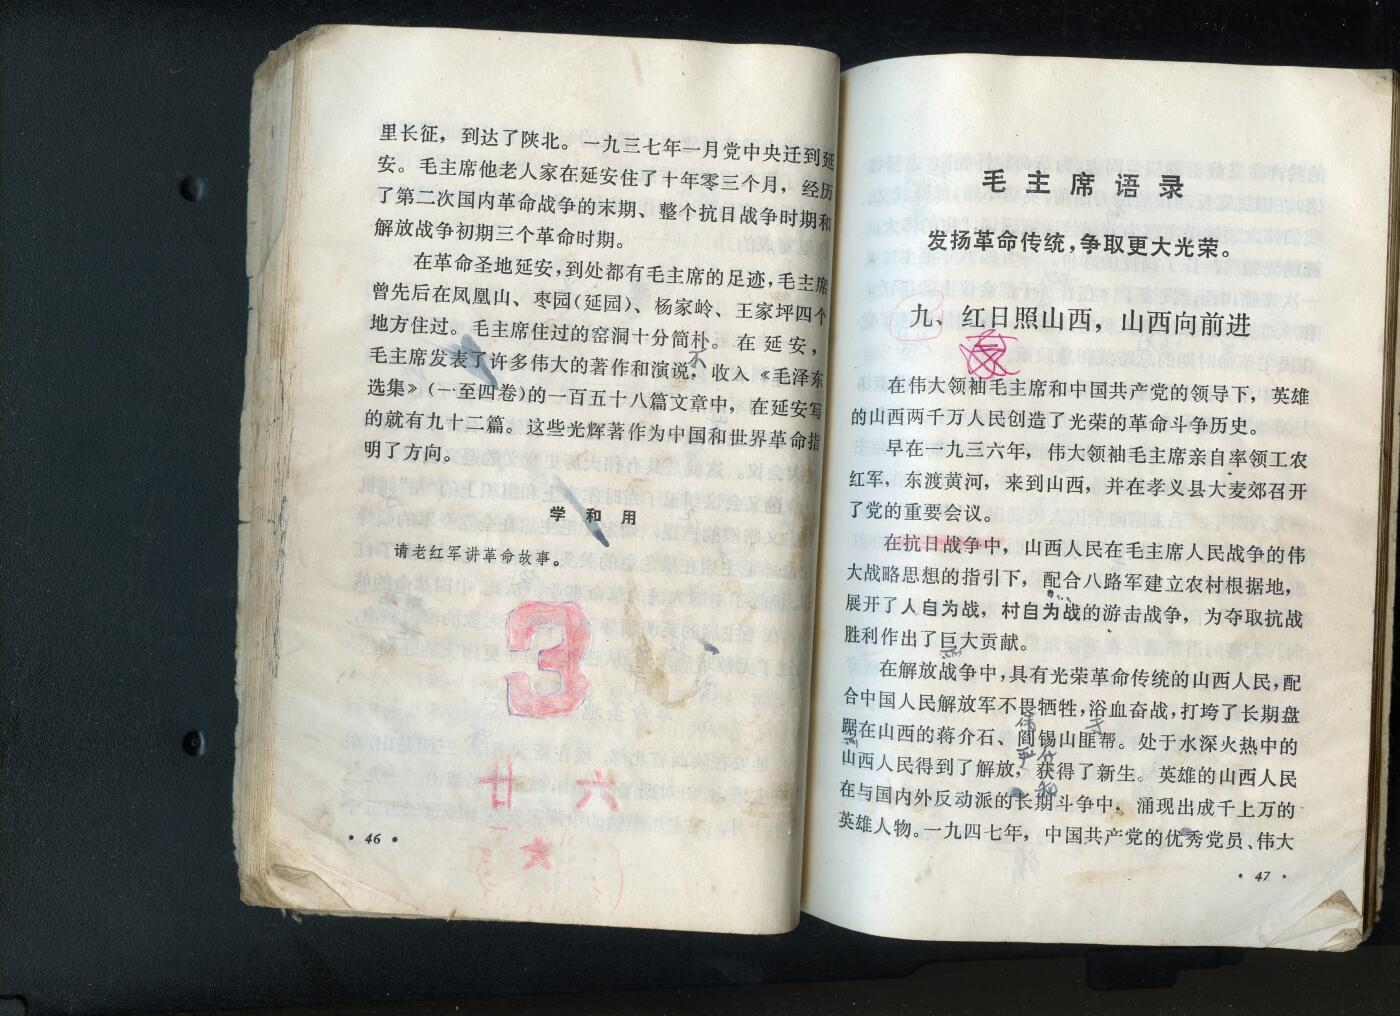 里长征，到达了陕北。一九三七年一月党中央迁到延
安。毛主席他老人家在延安住了十年零三个月，经历
了第二次国内革命战争的末期、整个抗日战争时期和
解放战争初期三个革命时期。
在革命圣地延安，到处都有毛主席的足迹，毛主席
曾先后在凤凰山、枣园（延园）、杨家岭、王家坪四个
地方住过。毛主席住过的窑洞十分简朴。在延安，
毛主席发表了许多伟大的著作和演说，收入《毛泽东
选集》（一至四卷）的一百五十八篇文章中，在延安写
的就有九十二篇。这些光辉著作为中国和世界革命指
明了方向。
学和用
请老红军讲革命故事。
3
廿六
六
• 46 •
毛主席语录
发扬革命传统，争取更大光荣。
九、红日照山西，山西向前进
在伟大领袖毛主席和中国共产党的领导下，英雄
的山西两千万人民创造了光荣的革命斗争历史。
早在一九三六年，伟大领袖毛主席亲自率领工农
红军，东渡黄河，来到山西，并在孝义县大麦郊召开
了党的重要会议。
在抗日战争中，山西人民在毛主席人民战争的伟
大战略思想的指引下，配合八路军建立农村根据地，
展开了人自为战，村自为战的游击战争，为夺取抗战
胜利作出了巨大贡献。
在解放战争中，具有光荣革命传统的山西人民，配
合中国人民解放军不畏牺牲，浴血奋战，打垮了长期盘
踞在山西的蒋介石、阎锡山匪帮。处于水深火热中的
山西人民得到了解放，获得了新生。英雄的山西人民
在与国内外反动派的长期斗争中，涌现出成千上万的
英雄人物。一九四七年，中国共产党的优秀党员、伟大
• 47 •